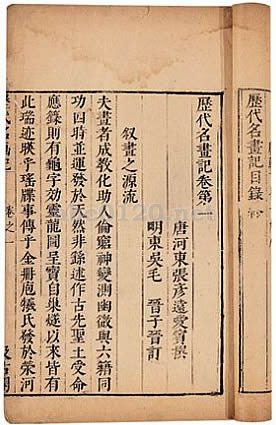 歷代名畫記目錄終
歷代名畫記卷第一
唐河東張彥遠愛賓撰
明東吳毛 晉子晉訂
叙畫之源流
夫畫者成教化助人倫窮神變測幽微與六籍同
功四時並運發於天然非繇述作古先聖王受命
應籙則有龜字效靈龍圖呈寶自巢燧以來皆有
此瑞迹暎乎瑤牒事傳乎金冊庖犧氏發於滎河
歷代名畫記 卷之一 汲古閣